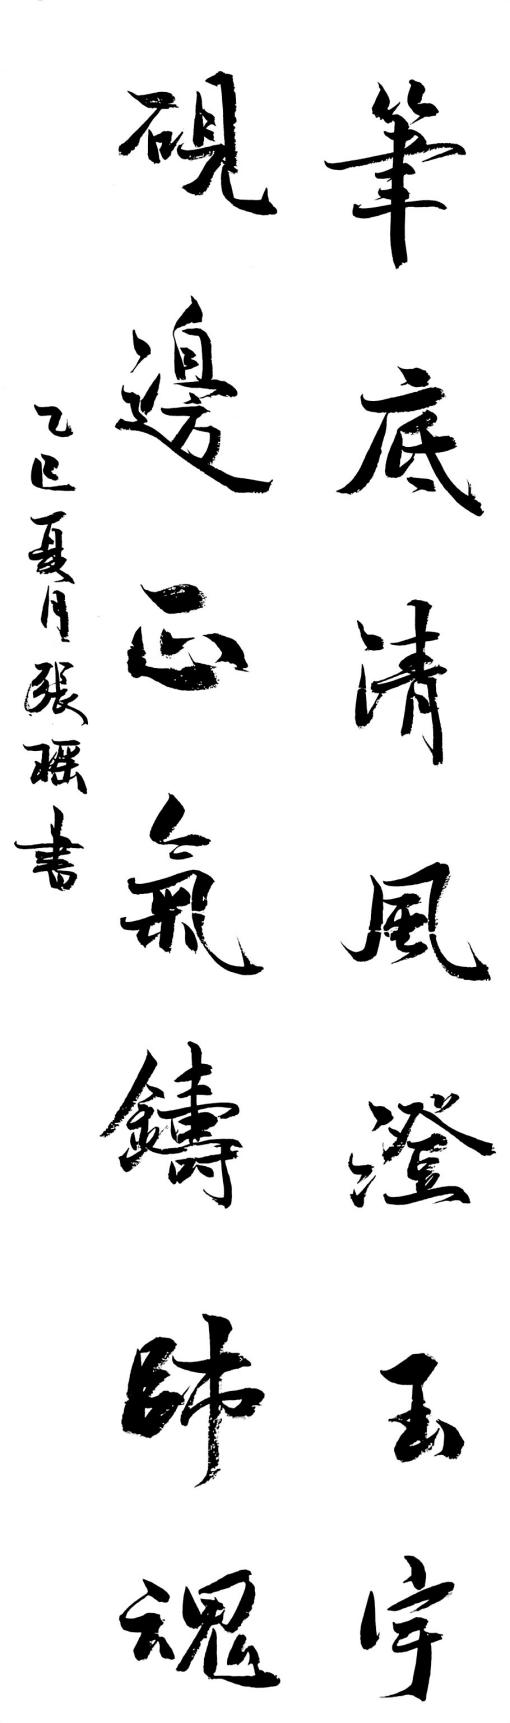 筆底清風澄玉宇
硯邊正氣鑄師魂
乙巳夏月張瑶書